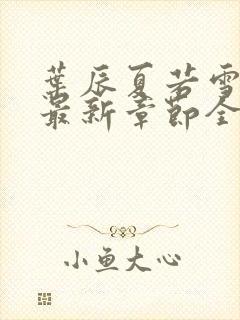 葉辰夏若雪
最新章節全
小魚大心